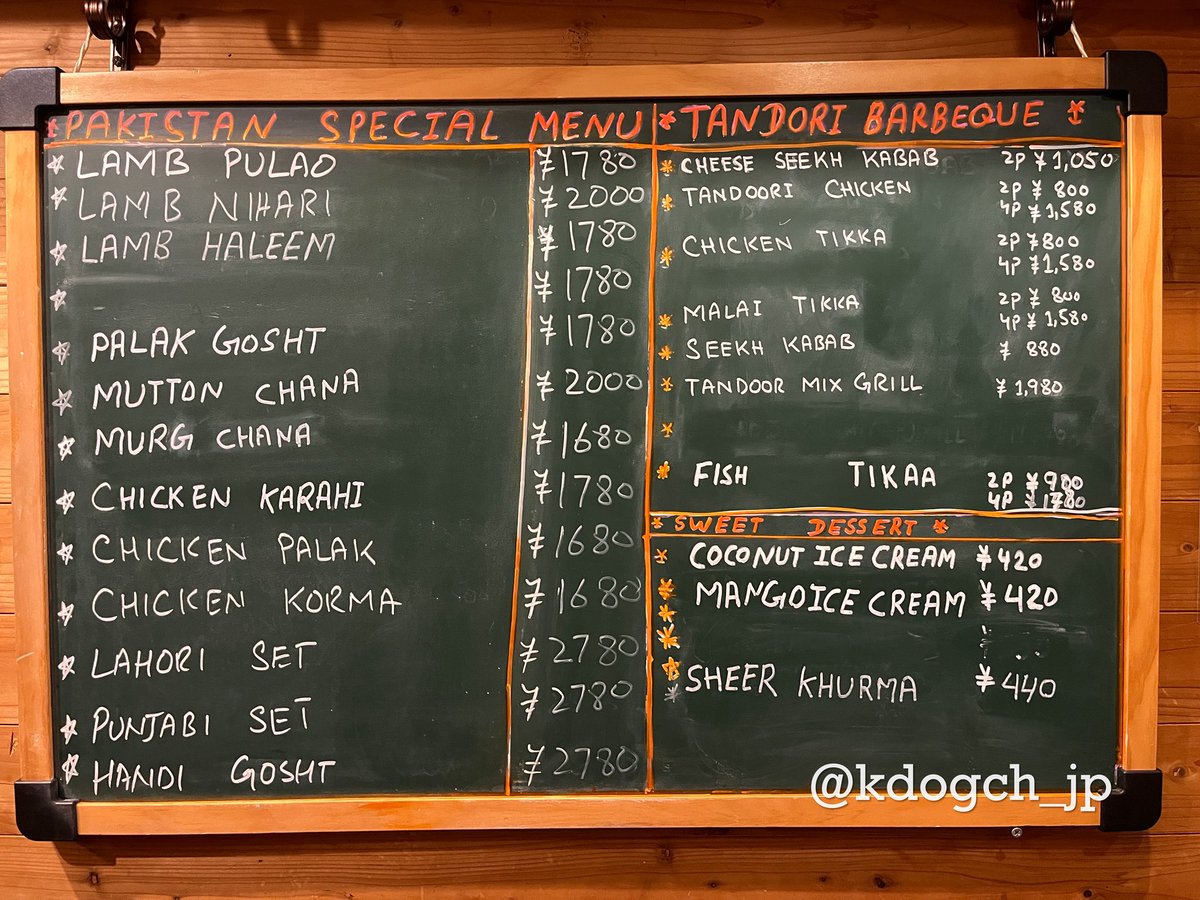 PAKISTAN SPECIAL MENU
LAMB PULAO ¥1780
LAMB NIHARI ¥2000
LAMB HALEEM ¥1780
¥1780
PALAK GOSHT ¥1780
MUTTON CHANA ¥2000
MURG CHANA ¥1680
CHICKEN KARAHI ¥1780
CHICKEN PALAK ¥1680
CHICKEN KORMA ¥1680
LAHORI SET ¥2780
PUNJABI SET ¥2780
HANDI GOSHT ¥2780
TANDORI BARBEQUE
CHEESE SEEKH KABAB 2P ¥1,050
TANDOORI CHICKEN 2P ¥800
4P ¥1,580
CHICKEN TIKKA 2P ¥800
4P ¥1,580
MALAI TIKKA 2P ¥800
4P ¥1,580
SEEKH KABAB ¥880
TANDOOR MIX GRILL ¥1,980
FISH TIKAA 2P ¥980
4P ¥1780
SWEET DESSERT
COCONUT ICE CREAM ¥420
MANGO ICE CREAM ¥420
SHEER KHURMA ¥440
@kdogch_jp